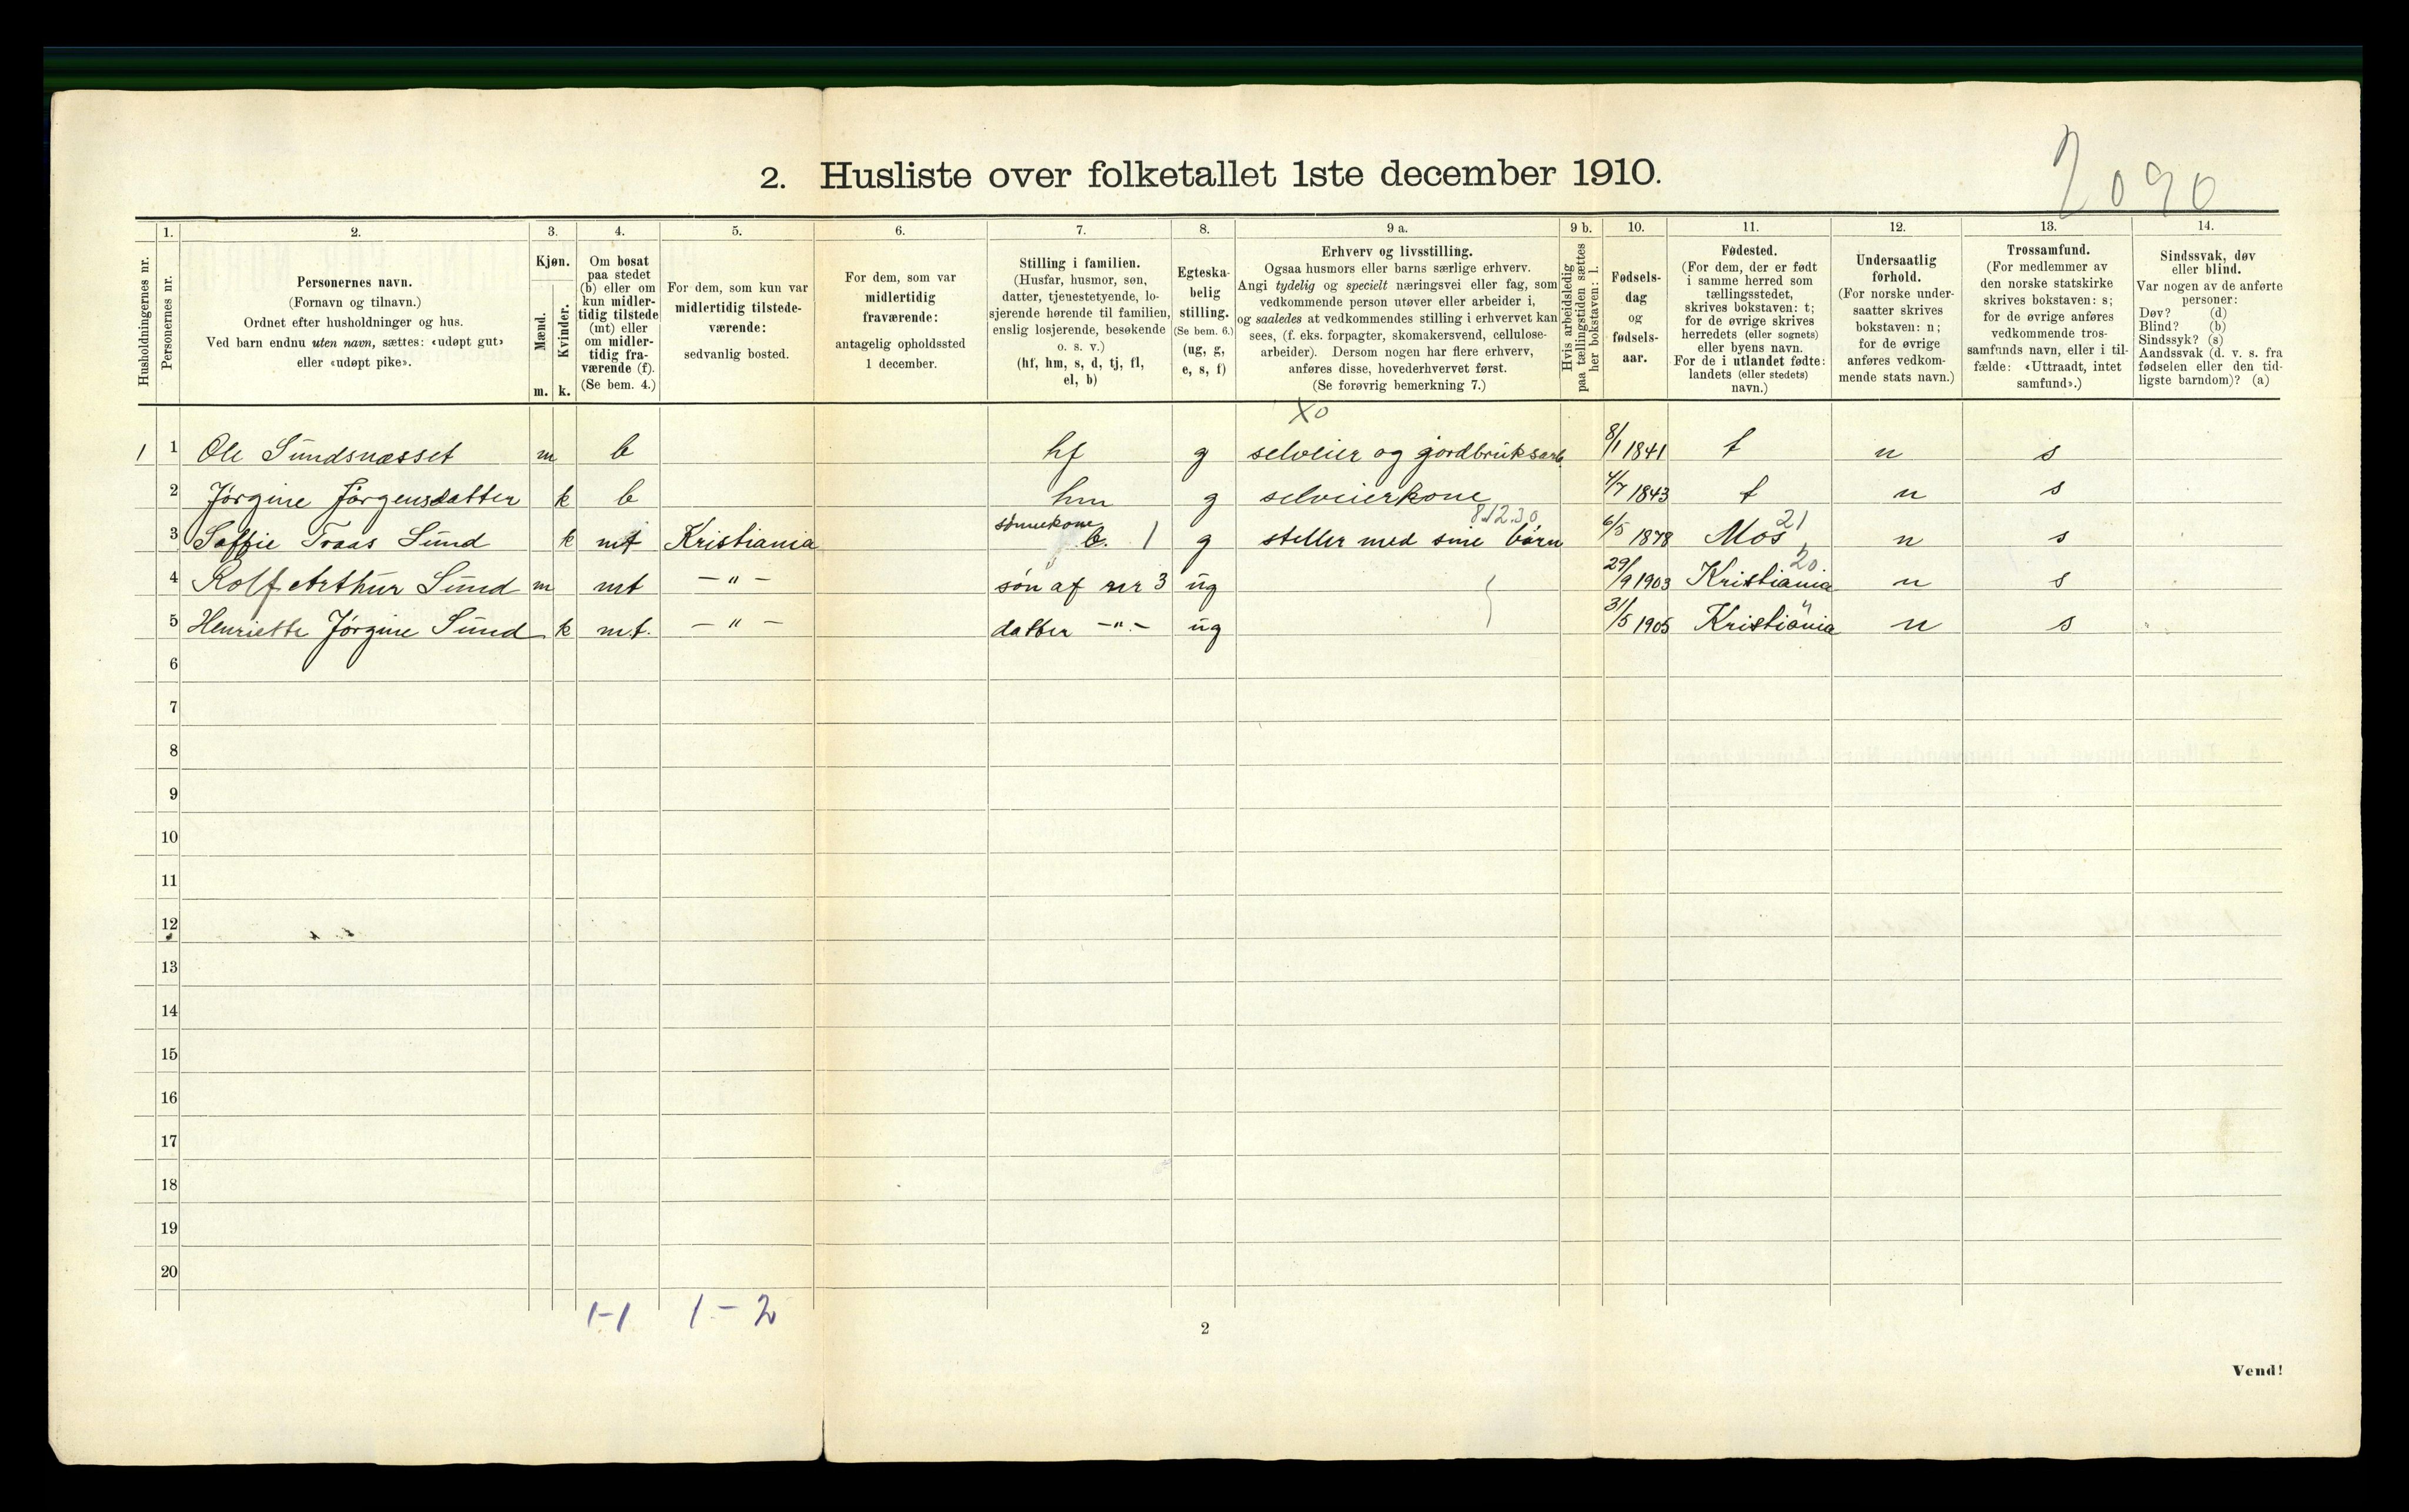 2090
2. Husliste over folketallet 1ste december 1910.
Husholdningernes nr.
1.
Personernes nr.
2.
Personernes navn.
(Fornavn og tilnavn.)
Ordnet efter husholdninger og hus.
Ved barn endnu uten navn, sættes: «udøpt gut»
eller «udøpt pike».
3.
Kjøn.
Mænd.
Kvinder.
m. k.
4.
Om bosat
paa stedet
(b) eller om
kun midler-
tidig tilstede
(mt) eller
om midler-
tidig fra-
værende (f).
(Se bem. 4.)
5.
For dem, som kun var
midlertidig tilstede-
værende:
sedvanlig bosted.
6.
For dem, som var
midlertidig
fraværende:
antagelig opholdssted
1 december.
7.
Stilling i familien.
(Husfar, husmor, søn,
datter, tjenestetyende, lo-
sjerende hørende til familien,
enslig losjerende, besøkende
o. s. v.)
(hf, hm, s, d, tj, fl,
el, b)
8.
Egteska-
belig
stilling.
(Se bem. 6.)
(ug, g,
e, s, f)
9 a.
Erhverv og livsstilling.
Ogsaa husmors eller barns særlige erhverv.
Angi tydelig og specielt næringsvei eller fag, som
vedkommende person utøver eller arbeider i,
og saaledes at vedkommendes stilling i erhvervet kan
sees, (f. eks. forpagter, skomakersvend, cellulose-
arbeider). Dersom nogen har flere erhverv,
anføres disse, hovederhvervet først.
(Se forøvrig bemerkning 7.)
9 b.
Hvis arbeidsledig
paa tællingstiden sættes
her bokstaven: l.
10.
Fødsels-
dag
og
fødsels-
aar.
11.
Fødested.
(For dem, der er født
i samme herred som
tællingsstedet,
skrives bokstaven: t;
for de øvrige skrives
herredets (eller sognets)
eller byens navn.
For de i utlandet fødte:
landets (eller stedets)
navn.)
12.
Undersaatlig
forhold.
(For norske under-
saatter skrives
bokstaven: n;
for de øvrige
anføres vedkom-
mende stats navn.)
13.
Trossamfund.
(For medlemmer av
den norske statskirke
skrives bokstaven: s;
for de øvrige anføres
vedkommende tros-
samfunds navn, eller i til-
fælde: «Uttraadt, intet
samfund».)
14.
Sindssvak, døv
eller blind.
Var nogen av de anførte
personer:
Døv? (d)
Blind? (b)
Sindssyk? (s)
Aandssvak (d. v. s. fra
fødselen eller den tid-
ligste barndom)? (a)
X0
1 1 Ole Sundsnæsset m b hf g selveier og jordbruksarb. 8/1 1841 t n s
2 Jørgine Jørgensdatter k b hm g selveierkone 4/7 1843 t n s
sønnekone 8.12.30 21
3 Soffie Traas Sund k mt Kristiania b. 1 g steller med sine børn 6/5 1878 Mos n s
20
4 Rolf Arthur Sund m mt – " – søn af nr 3 ug 29/9 1903 Kristiania n s
"
5 Henriette Jørgine Sund k mt. – " – datter – " – ug 31/5 1905 Kristiania n s
6
7
8
9
10
11
12
13
14
15
16
17
18
19
20
1-1 1-2
2
Vend!